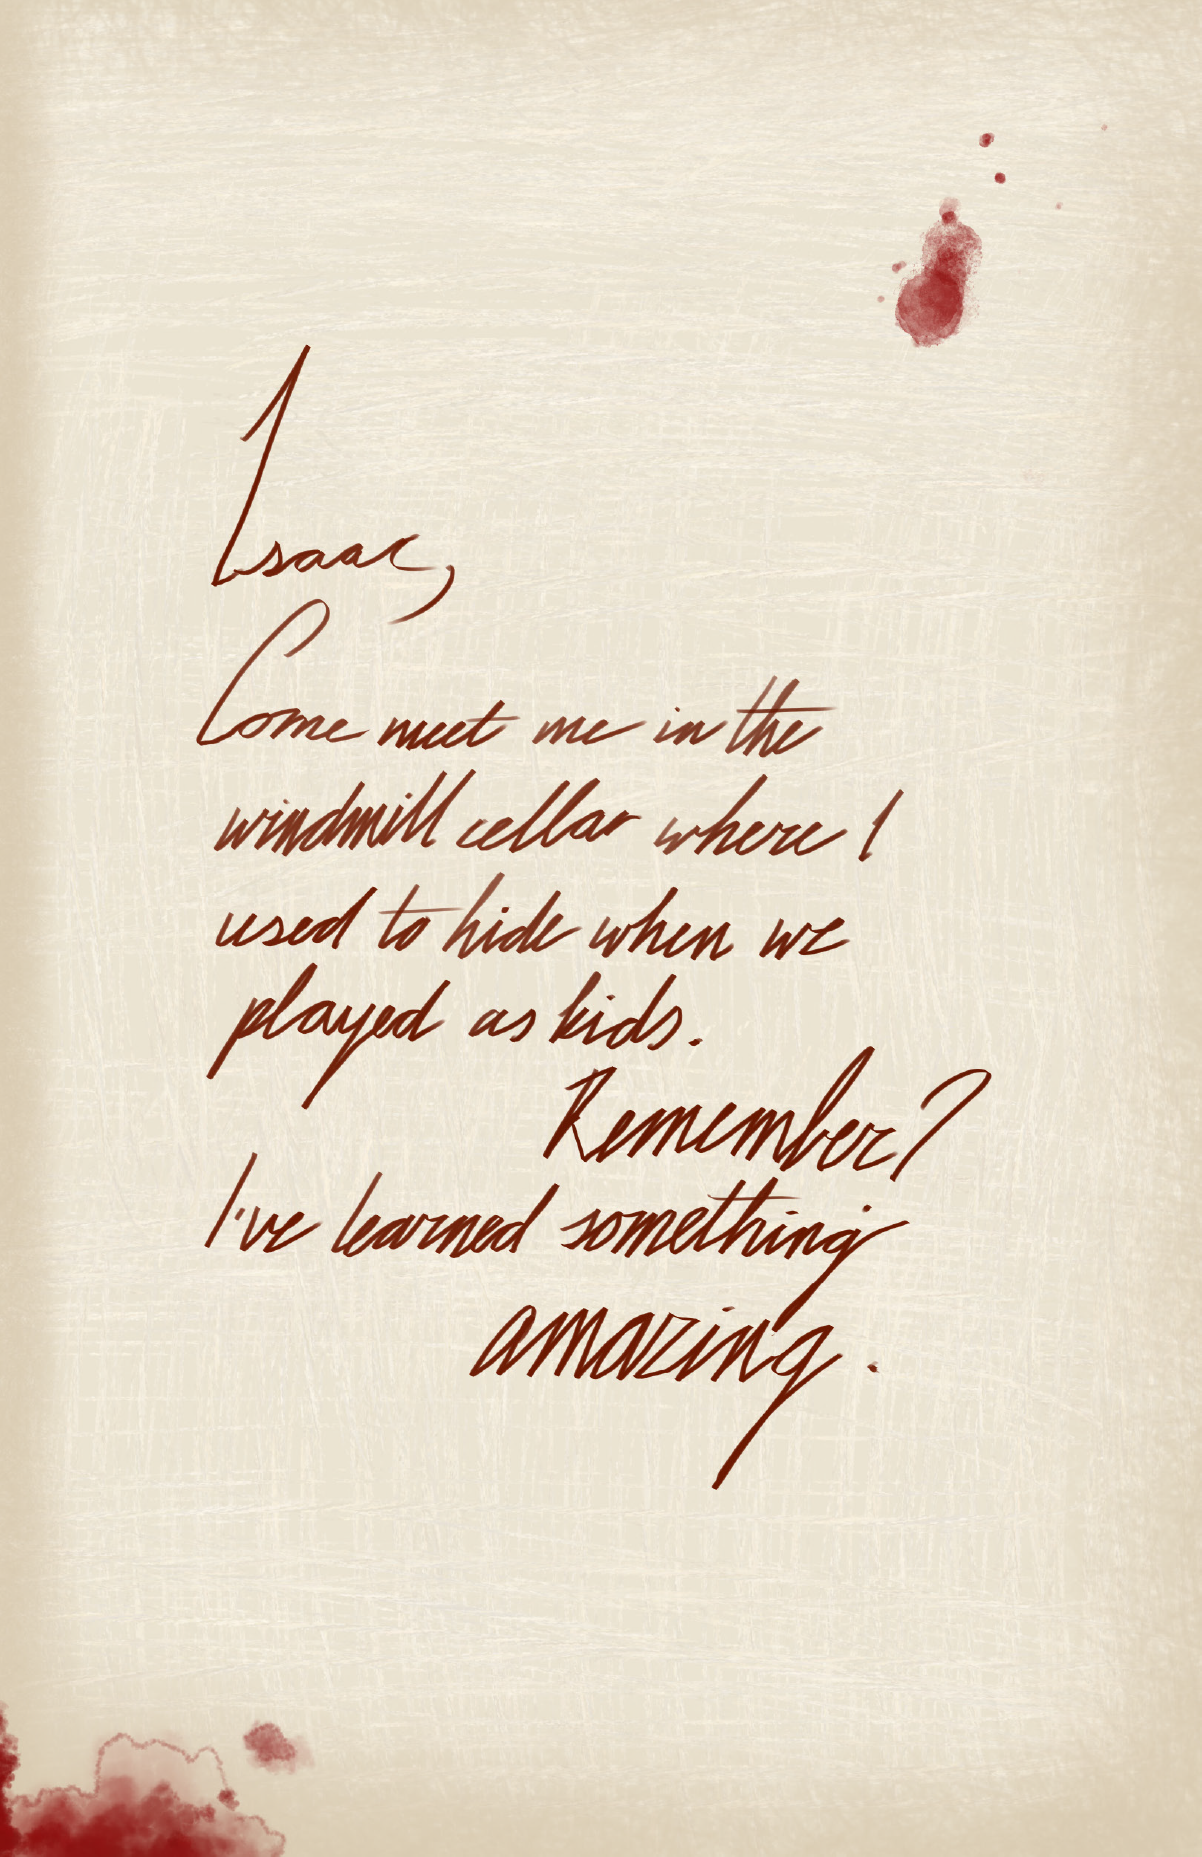 Isaac,
Come meet me in the
windmill cellar where I
used to hide when we
played as kids.
Remember?
I've learned something
amazing.